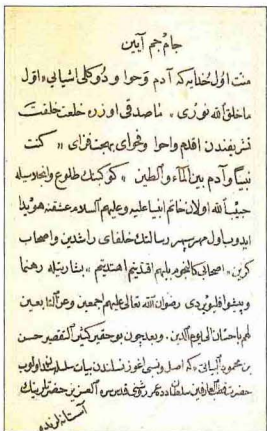 جام جم آیین
منت اول خدایه که آدم و حوا و دوکلی اشیایی اول
ما خلق الله نوری ماصدقی اوزره خلعت خلقت
شریفندن اقدم و احوا و فحوای بهجت فزای کنت
نبیا و آدم بین الماء والطین کوکبنك طلوع
حبیب الله اولان خاتم انبیا علیه وعلیهم السلام عشقنه هویدا
ایدوب اول مهر سپهر رسالتك خلفای راشدین واصحاب
کزین اصحابی کالنجوم بایهم اقتدیتم اهتدیتم بشارتیله رهنما
و پیشوا قلیویردی رضوان الله تعالی علیهم اجمعین وعن التابعین
لهم باحسان الی یوم الدین وبعد چون بو حقیر کثیر التقصیر حسن
بن محمود البیاتی کم اصل و نسبی اغوز نسلندن بیات سلطان اولوب
حضرت قطب العارفین سلطان دده عمر روشنی قدس سره العزیز حضرتلرینك
آستانه لرنده